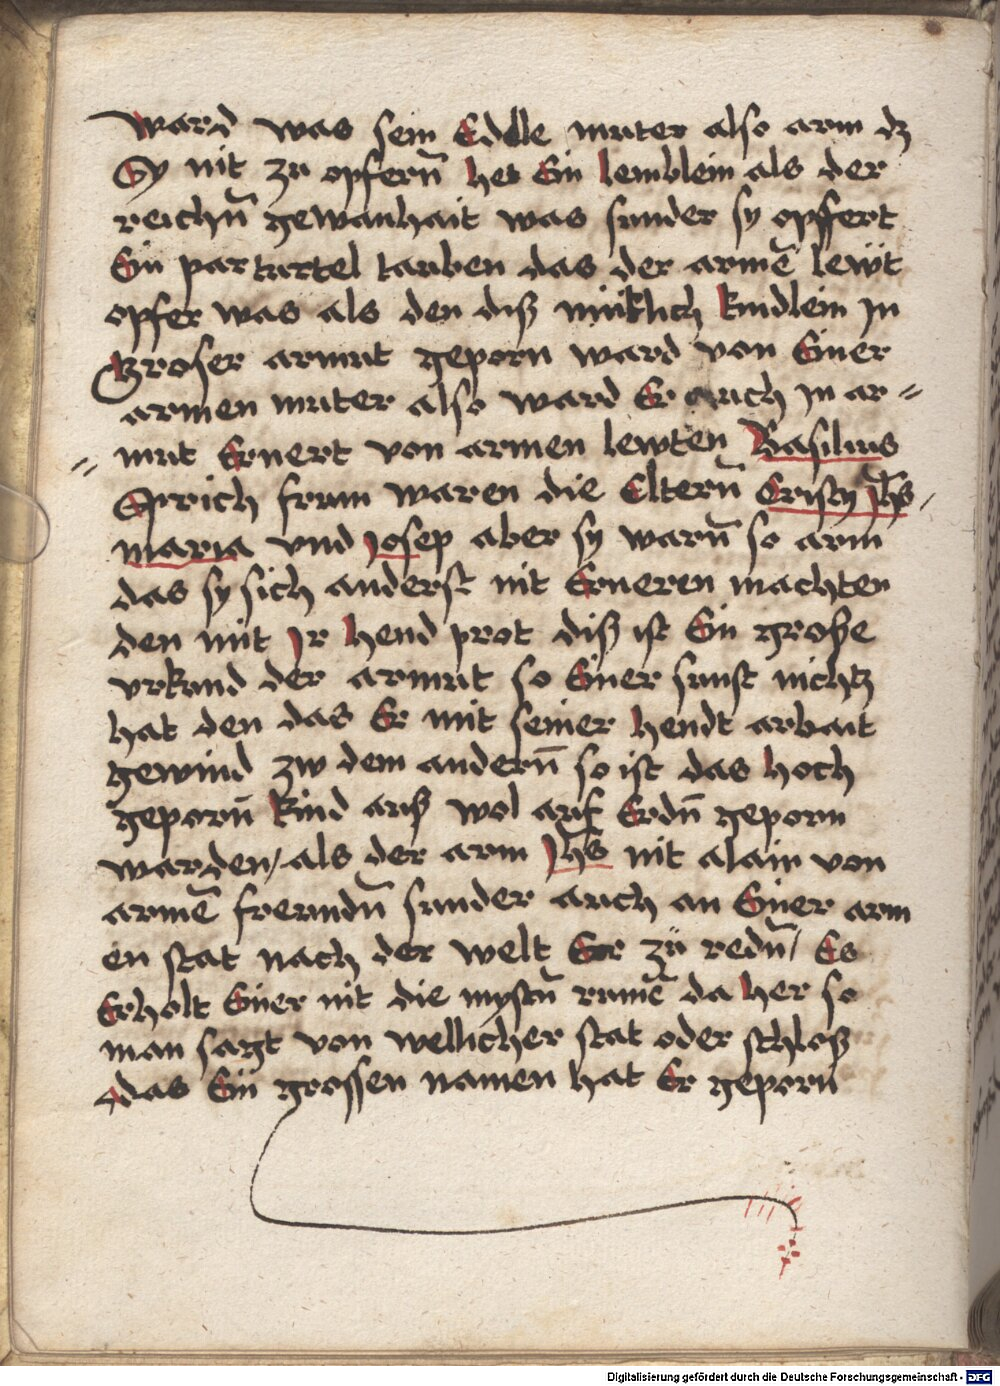 ward was sein Edele muter also arm dz
Sy nit zu opfern̄ het Ein lemblein als der
reichn̄ gewanhait was sunder sy opfert
Ein par turtel tauben das der armē lewt
opfer was als den diß miniklich kindlein In
Groser armut geporn ward von Einer
armen muter also ward Er auch In ar=
mut Ernert von armen lewten Basilius
Sprich frum waren die Elternn̄ Cristy Jhs
maria vnd Josep aber sy warn̄ so arm
das sy sich anderst nit Erneren machten
den mit Ir hend prot diß ist Ein große
vrkund der armut so Einer sunst nichtz
hat den das Er mit seiner hendt arbait
gewind zw dem andern̄ so ist das hoch
geporn̄ kind auß wol auf Erdn̄ geporn
warden / als der arm Jhs nit alain von
armē freundn̄ sunder auch an Einer arm
en stat nach der welt Eer zü redn̄ / Es
Erholt Einer nit die mystn̄ rumē da her so
man sagt von wellicher stat oder schloß
das Ein grossen namen hat Er geporn
Digitalisierung gefördert durch die Deutsche Forschungsgemeinschaft - DFG